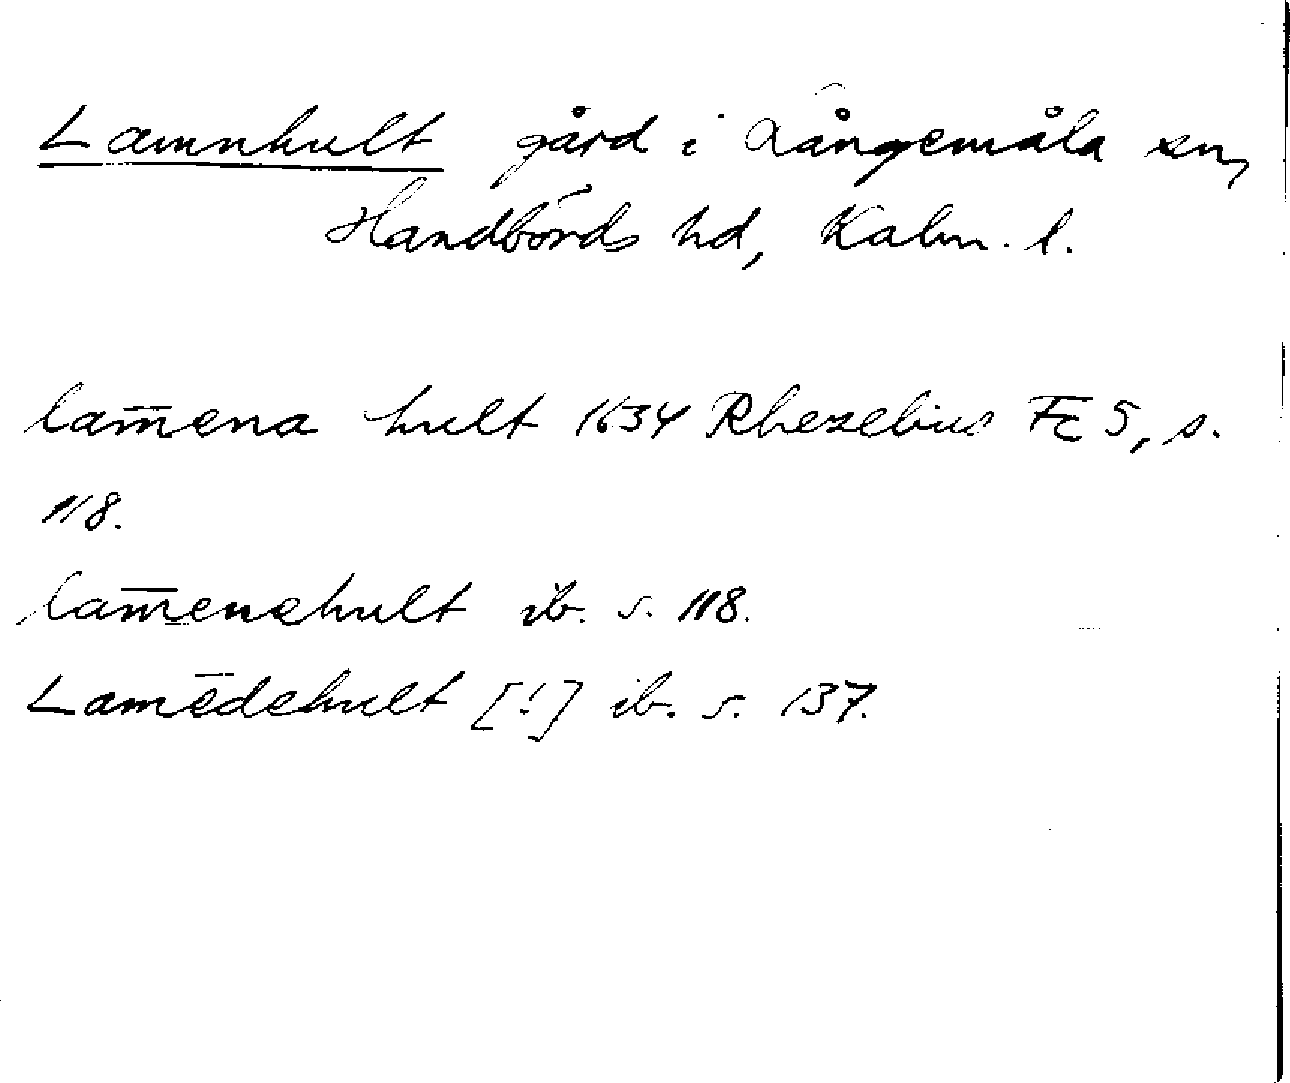 Lamnhult gård i Långemåla sn,
Handbörds hd, Kalm. l.
lam̄ena hult 1634 Rhezelius Fc 5, s.
118.
lam̄enehult ib. s. 118.
Lamēdehult [!] ib. s. 137.